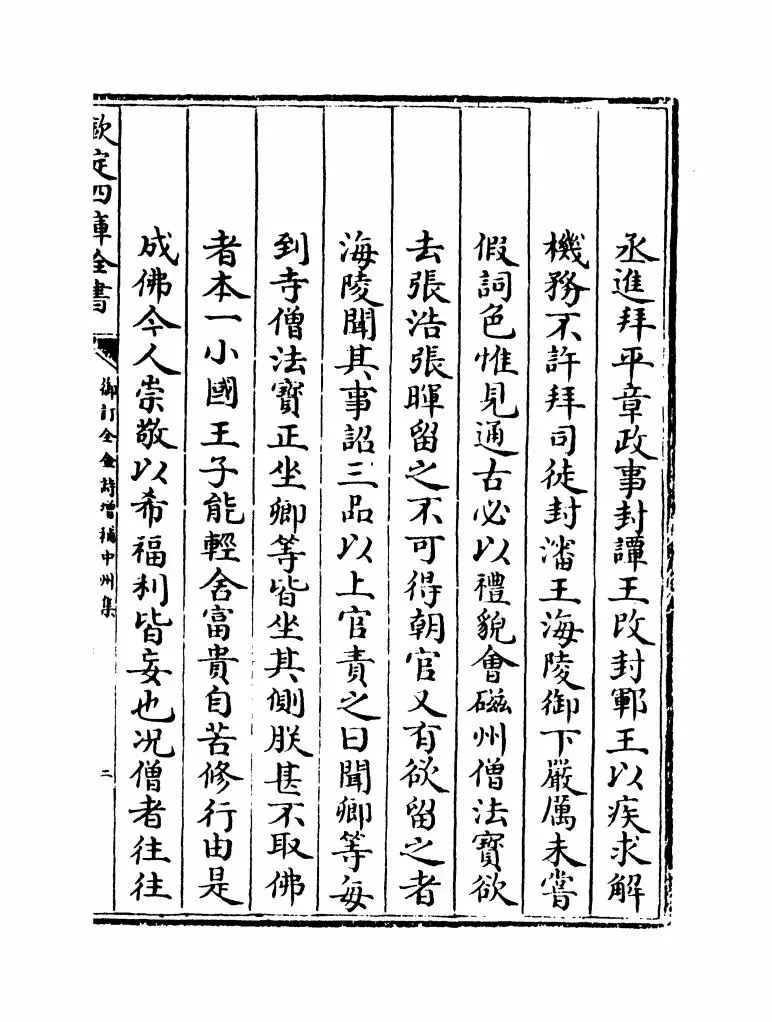 丞進拜平章政事封譚王改封鄆王以疾求解
機務不許拜司徒封瀋王海陵御下嚴厲未嘗
假詞色惟見通古必以禮貌會磁州僧法寶欲
去張浩張暉留之不可得朝官又有欲留之者
海陵聞其事詔三品以上官責之曰聞卿等每
到寺僧法寶正坐卿等皆坐其側朕甚不取佛
者本一小國王子能輕舍富貴自苦修行由是
成佛今人崇敬以希福利皆妄也况僧者往往
欽定四庫全書
御訂全金詩增補中州集
二